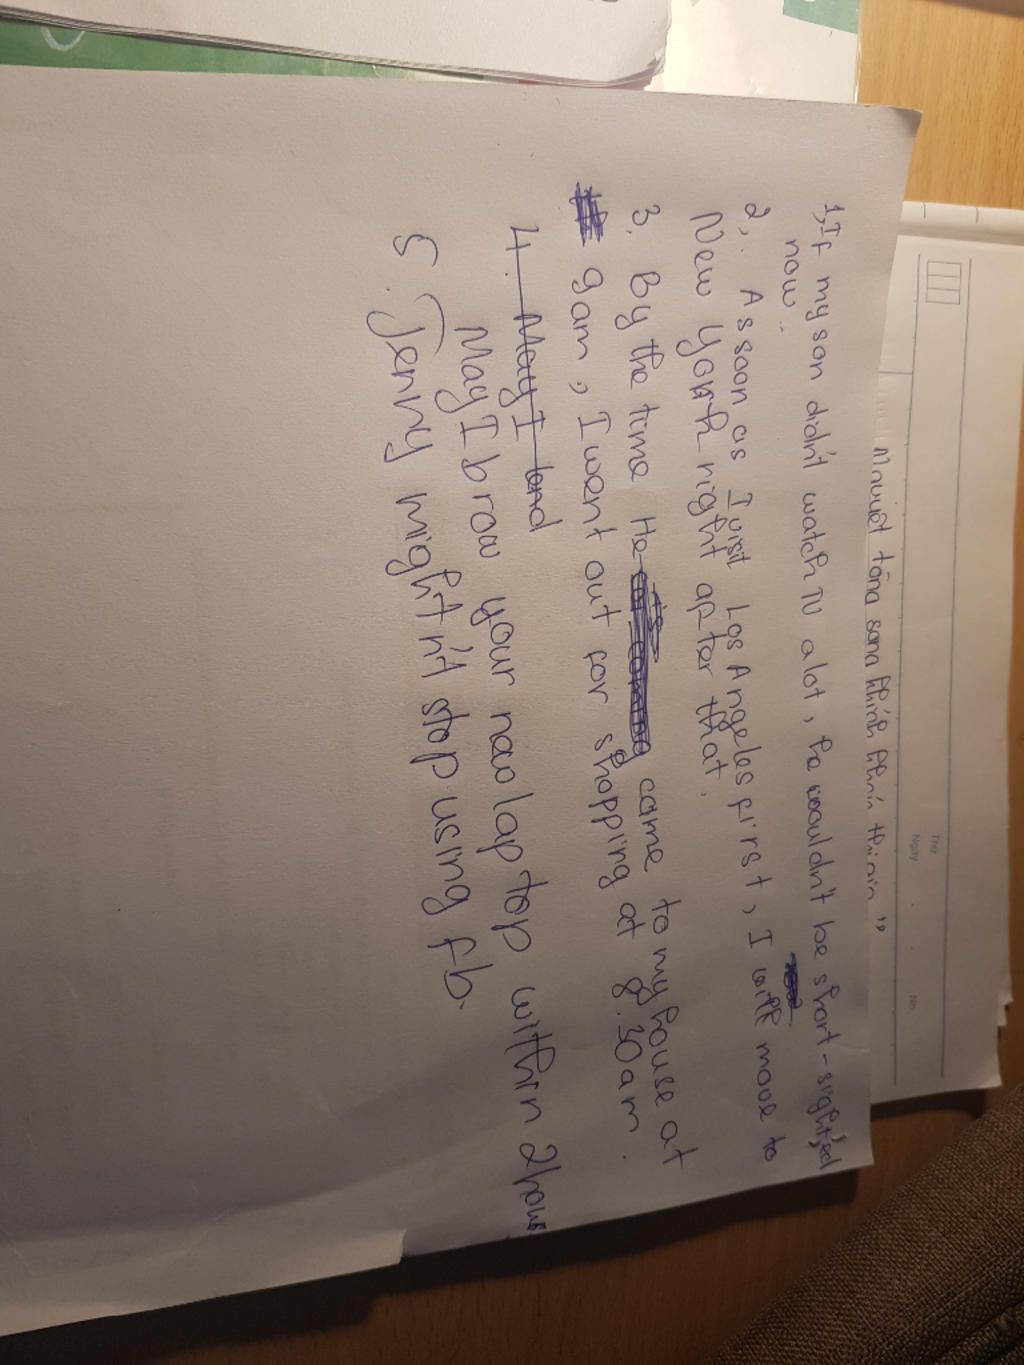 Thứ
Ngày
No.
1, If my son didn't watch TV a lot, he wouldn't be short-sighted
now..
2,. As soon as I visit Los Angeles first, I will move to
New York right after that.
3. By the time He came to my house at
9am, I went out for shopping at 8.30am.
4. May I lend
May I brow your new laptop within 2 hours
5. Jenny mightn't stop using fb.